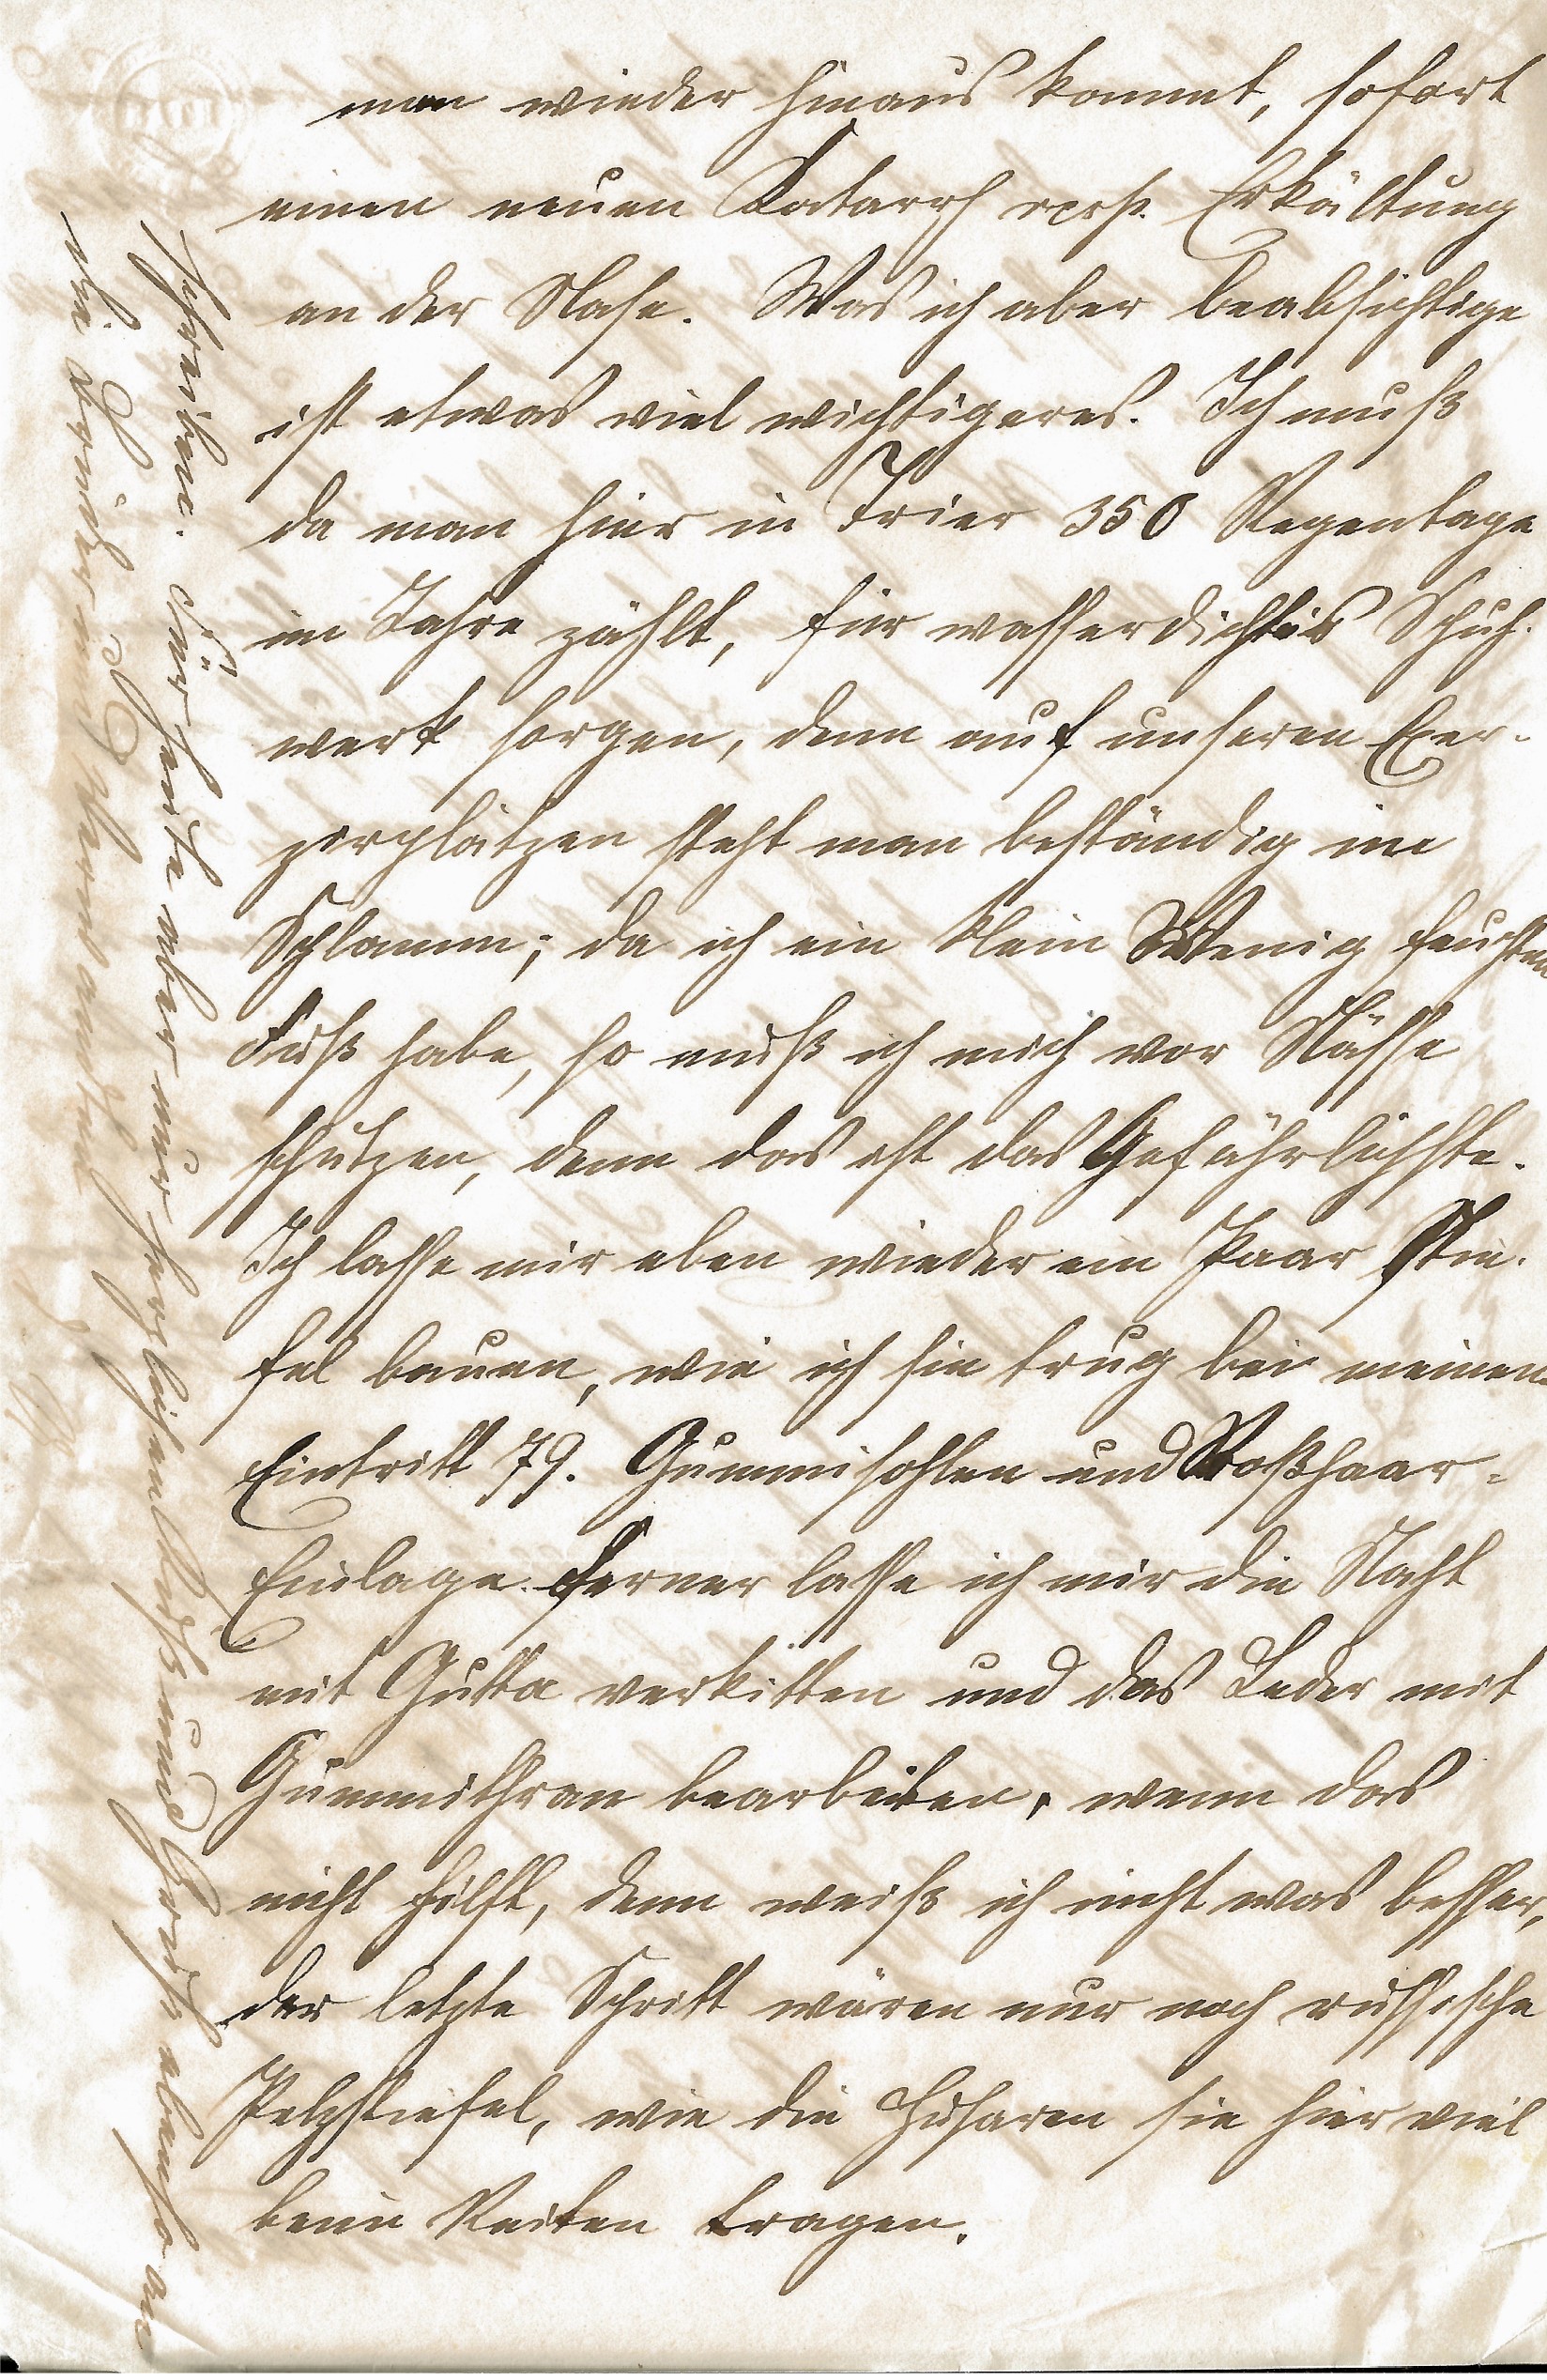 man wieder hinaus kommt, sofort
einen neuen Katarrh resp. Erkältung
an der Nase. Was ich aber beabsichtige
ist etwas viel wichtigeres. Ich muß
da man hier in Trier 350 Regentage
im Jahre zählt, für wasserdichtes Schuh-
werk sorgen, denn auf unseren Exer-
zierplätzen steht man beständig im
Schlamm; da ich ein klein Wenig feuchten
Fuß habe, so muß ich mich vor Nässe
schützen, denn das ist das Gefährlichste.
Ich lasse mir eben wieder ein Paar Stie-
fel bauen, wie ich sie trug bei meinem
Eintritt 79. Gummisohlen und Roßhaar-
Einlage. Ferner lasse ich mir die Naht
mit Gutta verkitten und das Leder mit
Gummithran bearbeiten, wenn das
nicht hilft, dann weiß ich nicht was besser,
der letzte Schritt wären nur noch russische
Pelzstiefel, wie die Husaren sie hier viel
beim Reiten tragen.
schreiben. Für heute aber nur herzlichen Gruß und ebenso an
die Brüder und